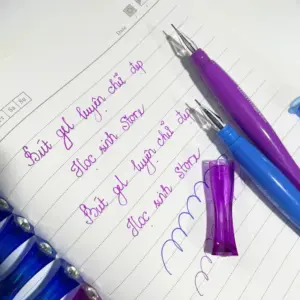 Bút gel luyện chữ đẹp
Học sinh Store
Bút gel luyện chữ đẹp
Học sinh Store